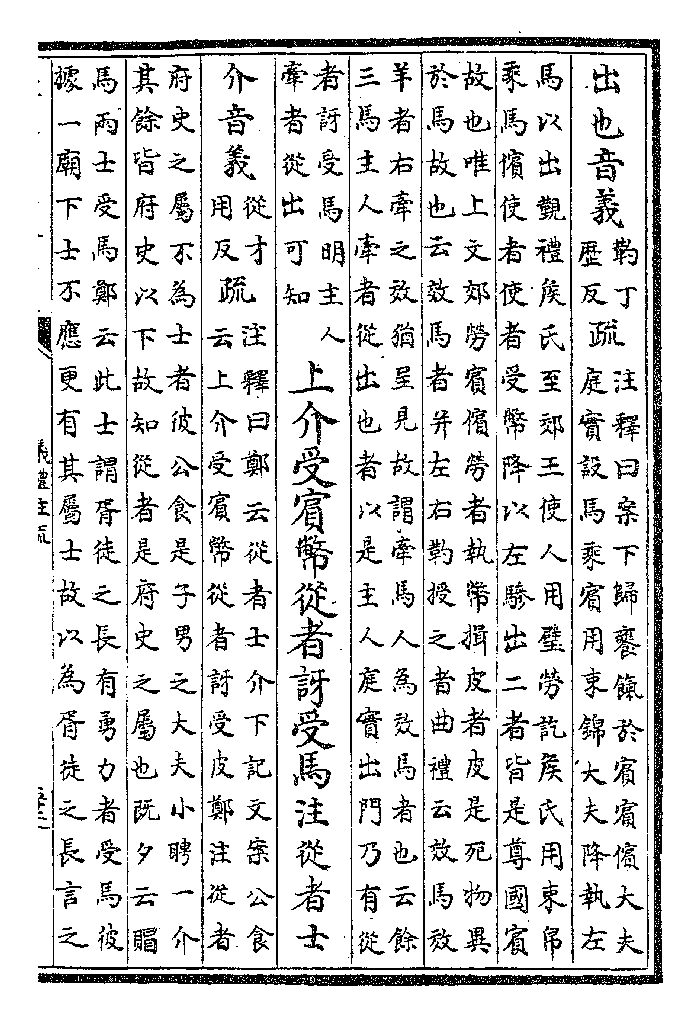 出也音義靮丁歴反疏注釋曰案下歸饔餼於賓賓儐大夫
庭實設馬乘賓用束錦大夫降執左
馬以出覲禮侯氏至郊王使人用璧勞訖侯氏用束帛
乘馬儐使者使者受幣降以左驂出二者皆是尊國賓
故也唯上文郊勞賓儐勞者執幣揖皮者皮是死物異
於馬故也云效馬者并左右靮授之者曲禮云效馬效
羊者右牽之效猶呈見故謂牽馬人為效馬者也云餘
三馬主人牽者從出也者以是主人庭實出門乃有從
者訝受馬明主人
牽者從出可知
上介受賓幣從者訝受馬注從者士
介音義從才用反疏注釋曰鄭云從者士介下記文案公食
云上介受賓幣從者訝受皮鄭注從者
府史之屬不為士者彼公食是子男之大夫小聘一介
其餘皆府史以下故知從者是府史之屬也既夕云賵
馬兩士受馬鄭云此士謂胥徒之長有勇力者受馬彼
據一廟下士不應更有其屬士故以為胥徒之長言之
儀禮注疏